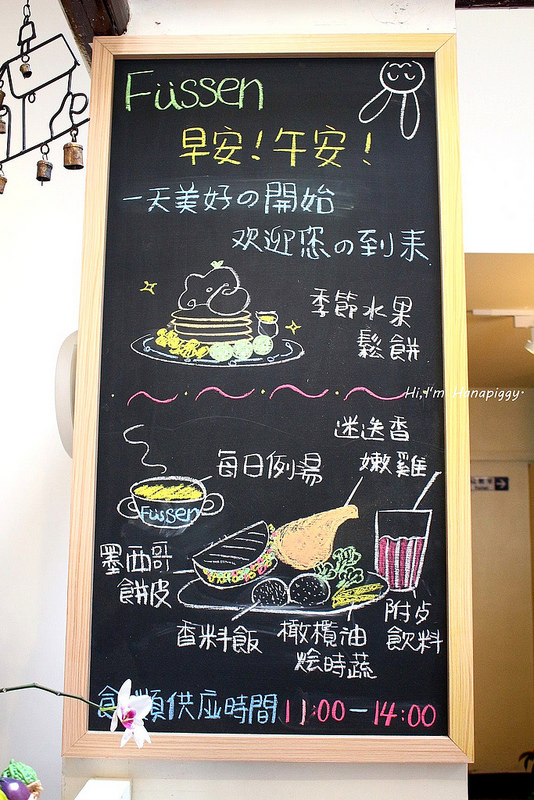 Füssen
早安!午安!
一天美好の開始
欢迎您の到来
季節水果
鬆餅
Hi,I'm Hanapiggy.
迷迭香
嫩雞
每日例湯
Füssen
墨西哥
餅皮
香料飯
橄欖油
燴時蔬
附皮
飲料
類供应時間11:00-14:00